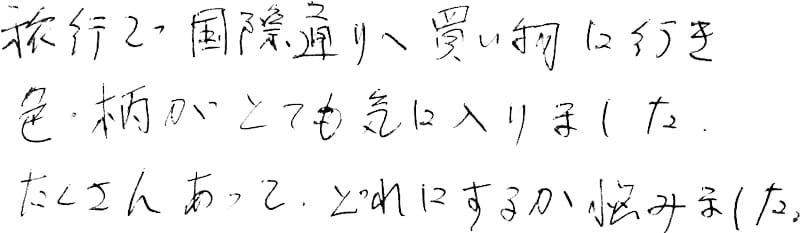 旅行で国際通りへ買い物に行き
色・柄がとても気に入りました.
たくさんあって、どれにするか悩みました。